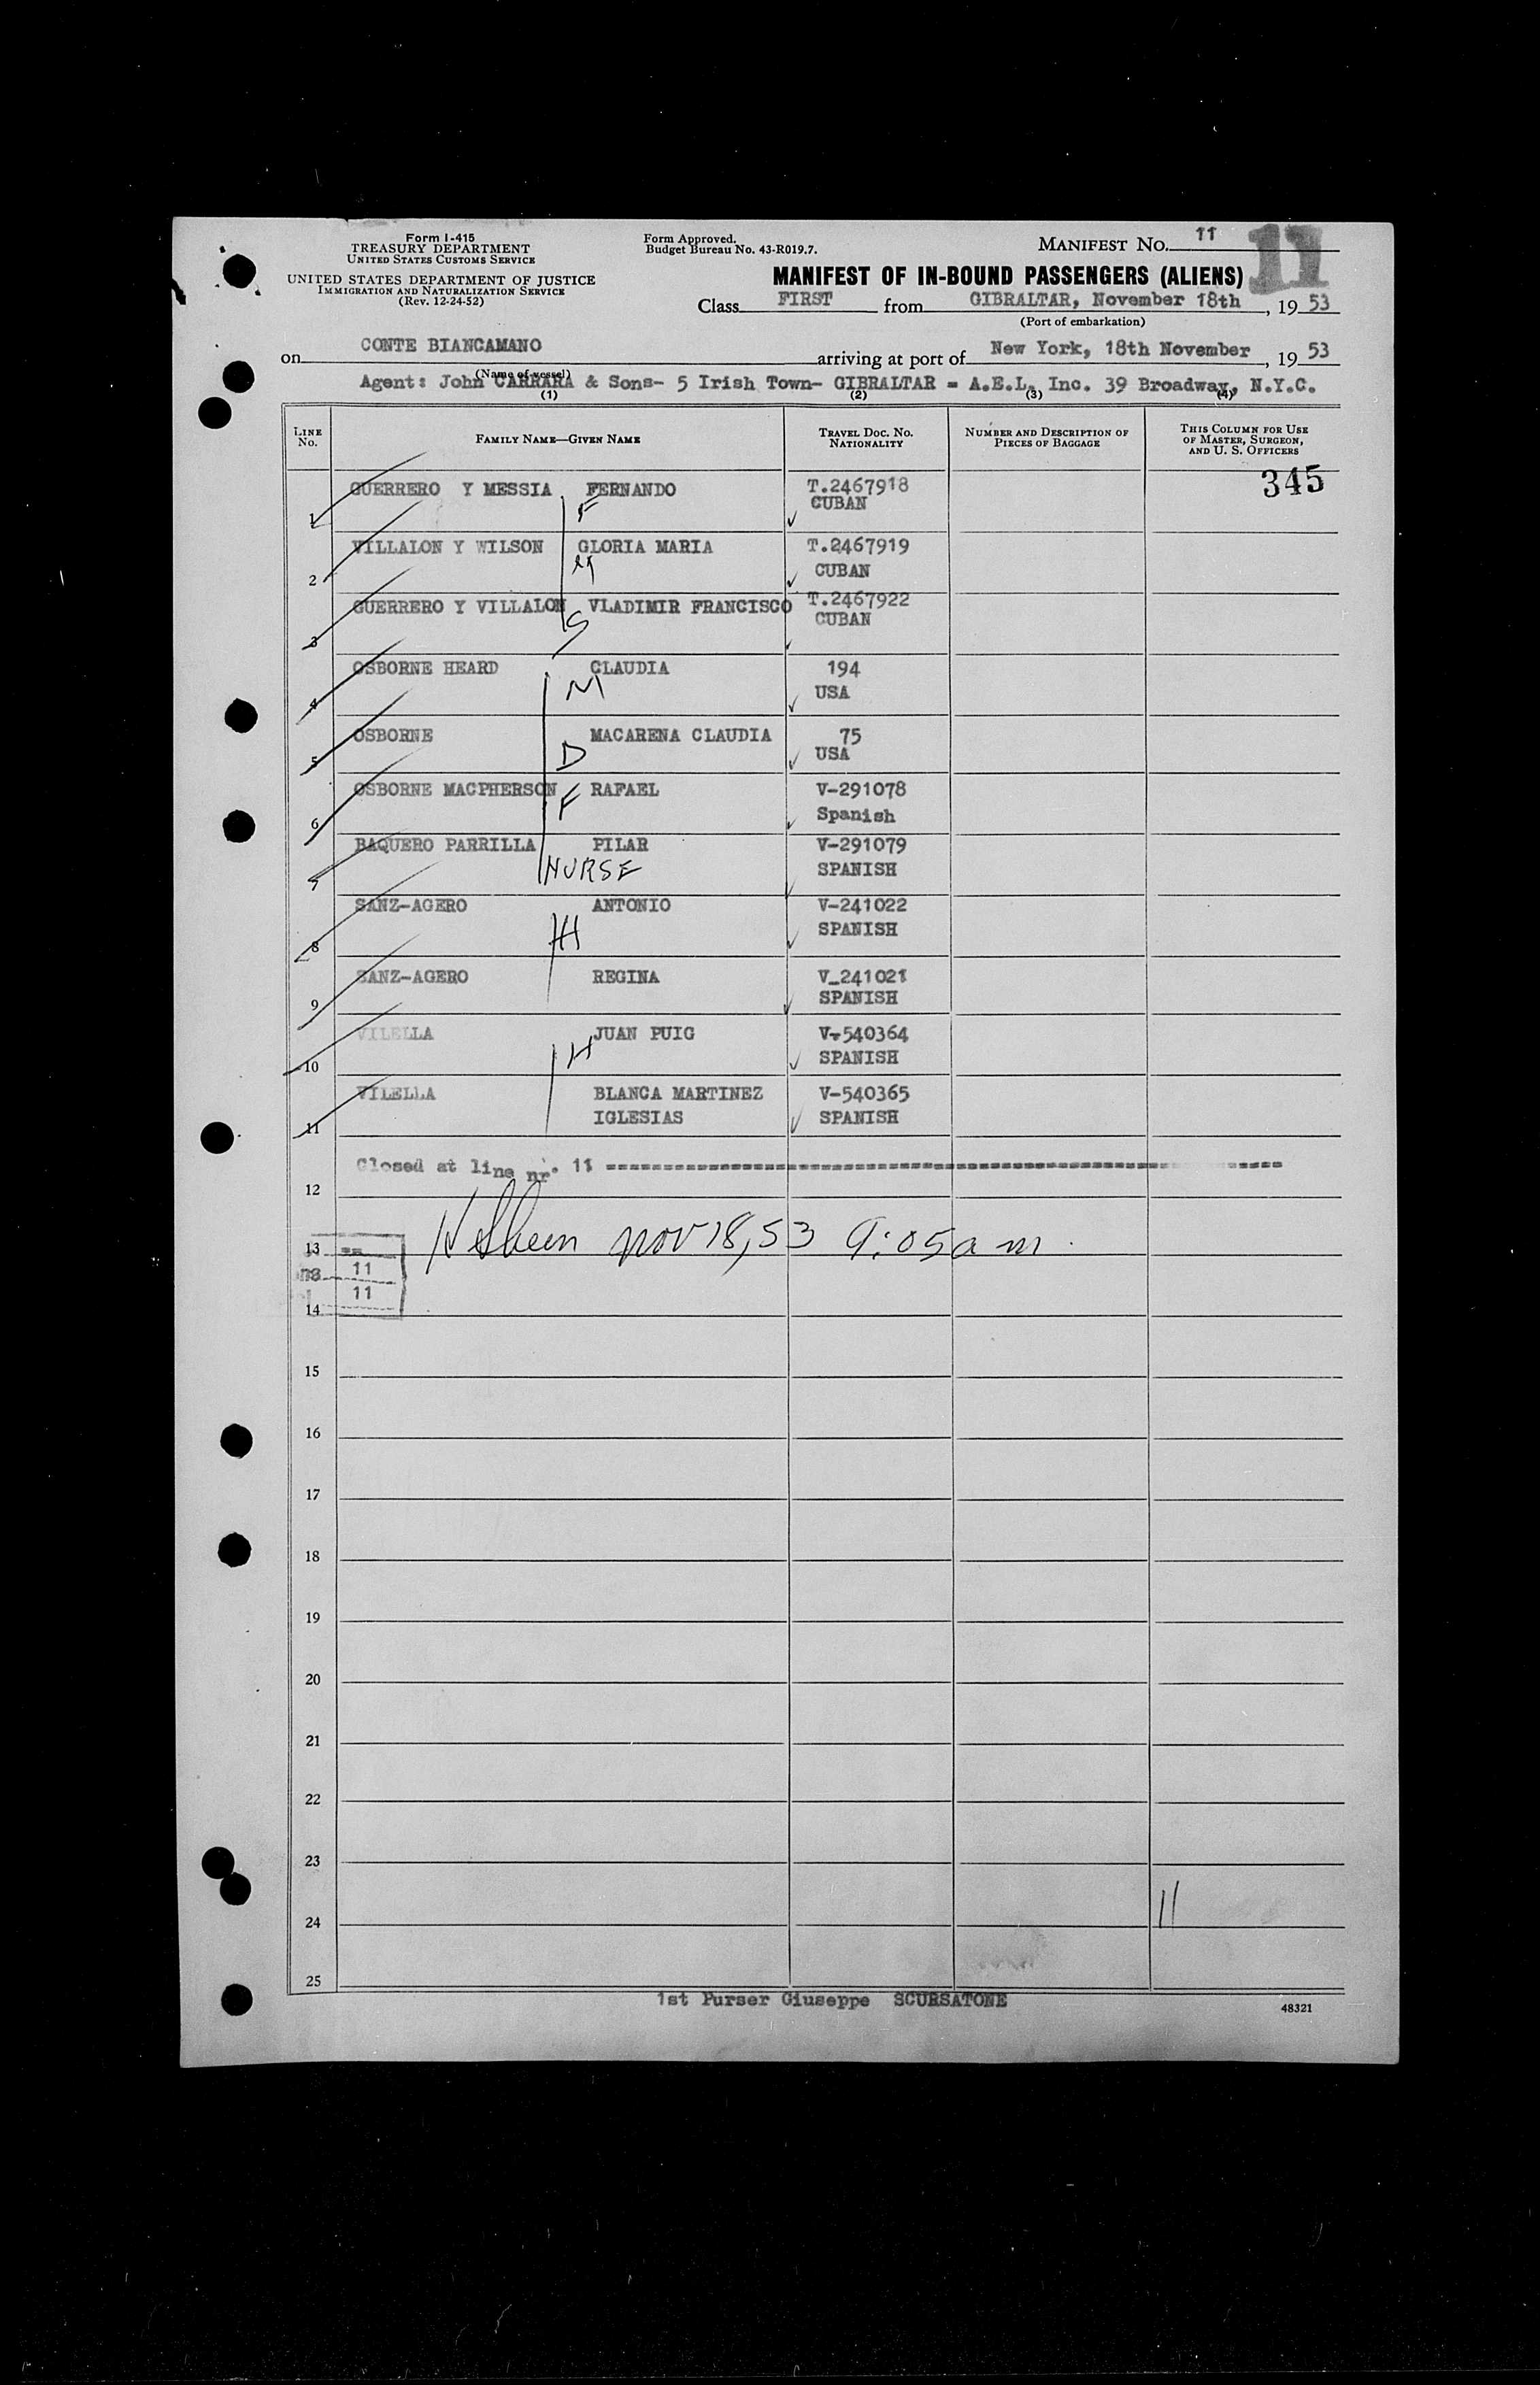 Form I-415
TREASURY DEPARTMENT
UNITED STATES CUSTOMS SERVICE
UNITED STATES DEPARTMENT OF JUSTICE
IMMIGRATION AND NATURALIZATION SERVICE
(Rev. 12-24-52)
Form Approved.
Budget Bureau No. 43-R019.7.
MANIFEST NO. 11
11
MANIFEST OF IN-BOUND PASSENGERS (ALIENS)
Class FIRST from GIBRALTAR, November 18th, 19 53
(Port of embarkation)
on CONTE BIANCAMANO arriving at port of New York, 18th November, 19 53
(Name of vessel)
Agent: John CARRARA & Sons- 5 Irish Town- GIBRALTAR = A.E.L. Inc. 39 Broadway, N.Y.C.
(1) (2) (3) (4)
LINE NO. FAMILY NAME—GIVEN NAME TRAVEL DOC. NO. NATIONALITY NUMBER AND DESCRIPTION OF PIECES OF BAGGAGE THIS COLUMN FOR USE OF MASTER, SURGEON, AND U. S. OFFICERS
345
1 GUERRERO Y MESSIA FERNANDO T.2467918
F CUBAN
2 VILLALON Y WILSON GLORIA MARIA T.2467919
M CUBAN
3 GUERRERO Y VILLALON VLADIMIR FRANCISCO T.2467922
S CUBAN
4 OSBORNE HEARD CLAUDIA 194
M USA
5 OSBORNE MACARENA CLAUDIA 75
D USA
6 OSBORNE MACPHERSON F RAFAEL V-291078
Spanish
7 BAQUERO PARRILLA PILAR V-291079
NURSE SPANISH
8 SANZ-AGERO ANTONIO V-241022
H SPANISH
9 SANZ-AGERO REGINA V-241021
SPANISH
10 VILELLA JUAN PUIG V-540364
H SPANISH
11 VILELLA BLANCA MARTINEZ V-540365
IGLESIAS SPANISH
Closed at line nr. 11
12
13 nov 18, 53 9:05 a m.
11
11
14
15
16
17
18
19
20
21
22
23
24 11
25
1st Purser Giuseppe SCURSATONE
48321